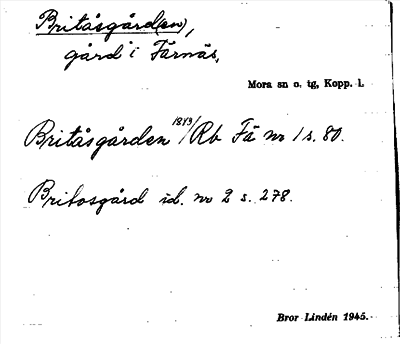 Britåsgård(en),
gård i Färnäs,
Mora sn o. tg, Kopp. l.
Britåsgården 1843/Rb Fä nr 1 s. 80.
Britosgård id. nr 2 s. 278.
Bror Lindén 1945.